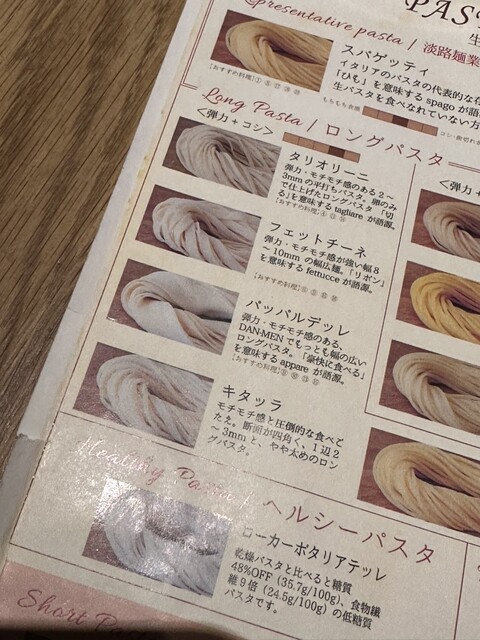 PAS
presentative pasta / 淡路麺業
スパゲッティ
イタリアのパスタの代表的な存
「ひも」を意味する spago が語
生パスタを食べなれていない方
【おすすめ料理】
もちもち食感
Long Pasta / ロングパスタ
<弾力+コシ>
<弾力
タリオリーニ
弾力・モチモチ感のある2~
3mmの平打ちパスタ。卵のみ
で仕上げたロングパスタ「切
る」を意味する tagliare が語源。
【おすすめ料理】
フェットチーネ
弾力・モチモチ感が強い幅8
~10mm の幅広麺。「リボン」
を意味する fettucce が語源。
【おすすめ料理】
パッパルデッレ
弾力・モチモチ感のある、
DAN-MENでもっとも幅の広い
ロングパスタ。「豪快に食べる」
を意味する appare が語源。
【おすすめ料理】
キタッラ
モチモチ感と圧倒的な食べご
たえ。断面が四角く、1辺2
~3mmと、やや太めのロン
グパスタ。
Healthy Pasta / ヘルシーパスタ
ローカーボタリアテッレ
乾燥パスタと比べると糖質
48%OFF (35.7g/100g)、食物繊
維9倍 (24.5g/100g) の低糖質
パスタです。
Short Pas